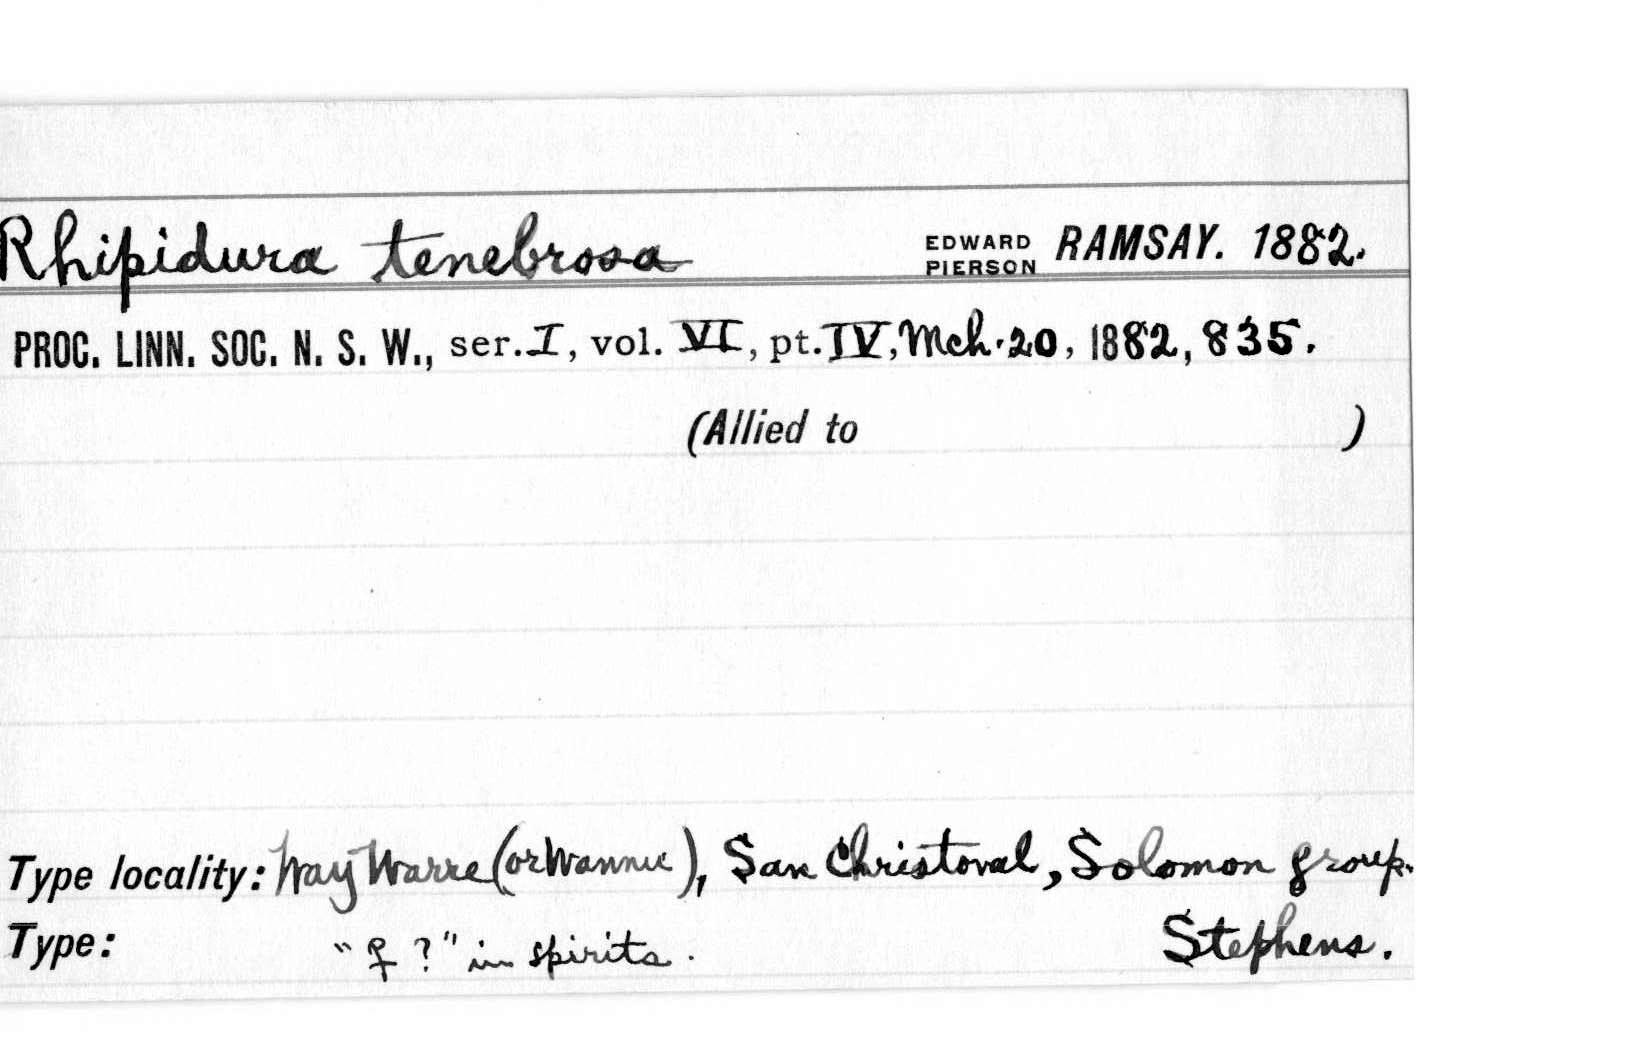 Rhipidura tenebrosa EDWARD PIERSON RAMSAY. 1882.
PROC. LINN. SOC. N. S. W., ser. I, vol. VI, pt. IV, Mch. 20, 1882, 835.
(Allied to )
Type locality: Way Warre (or Wannie), San Christoval, Solomon group.
Type: "♀ ?" in spirits. Stephens.